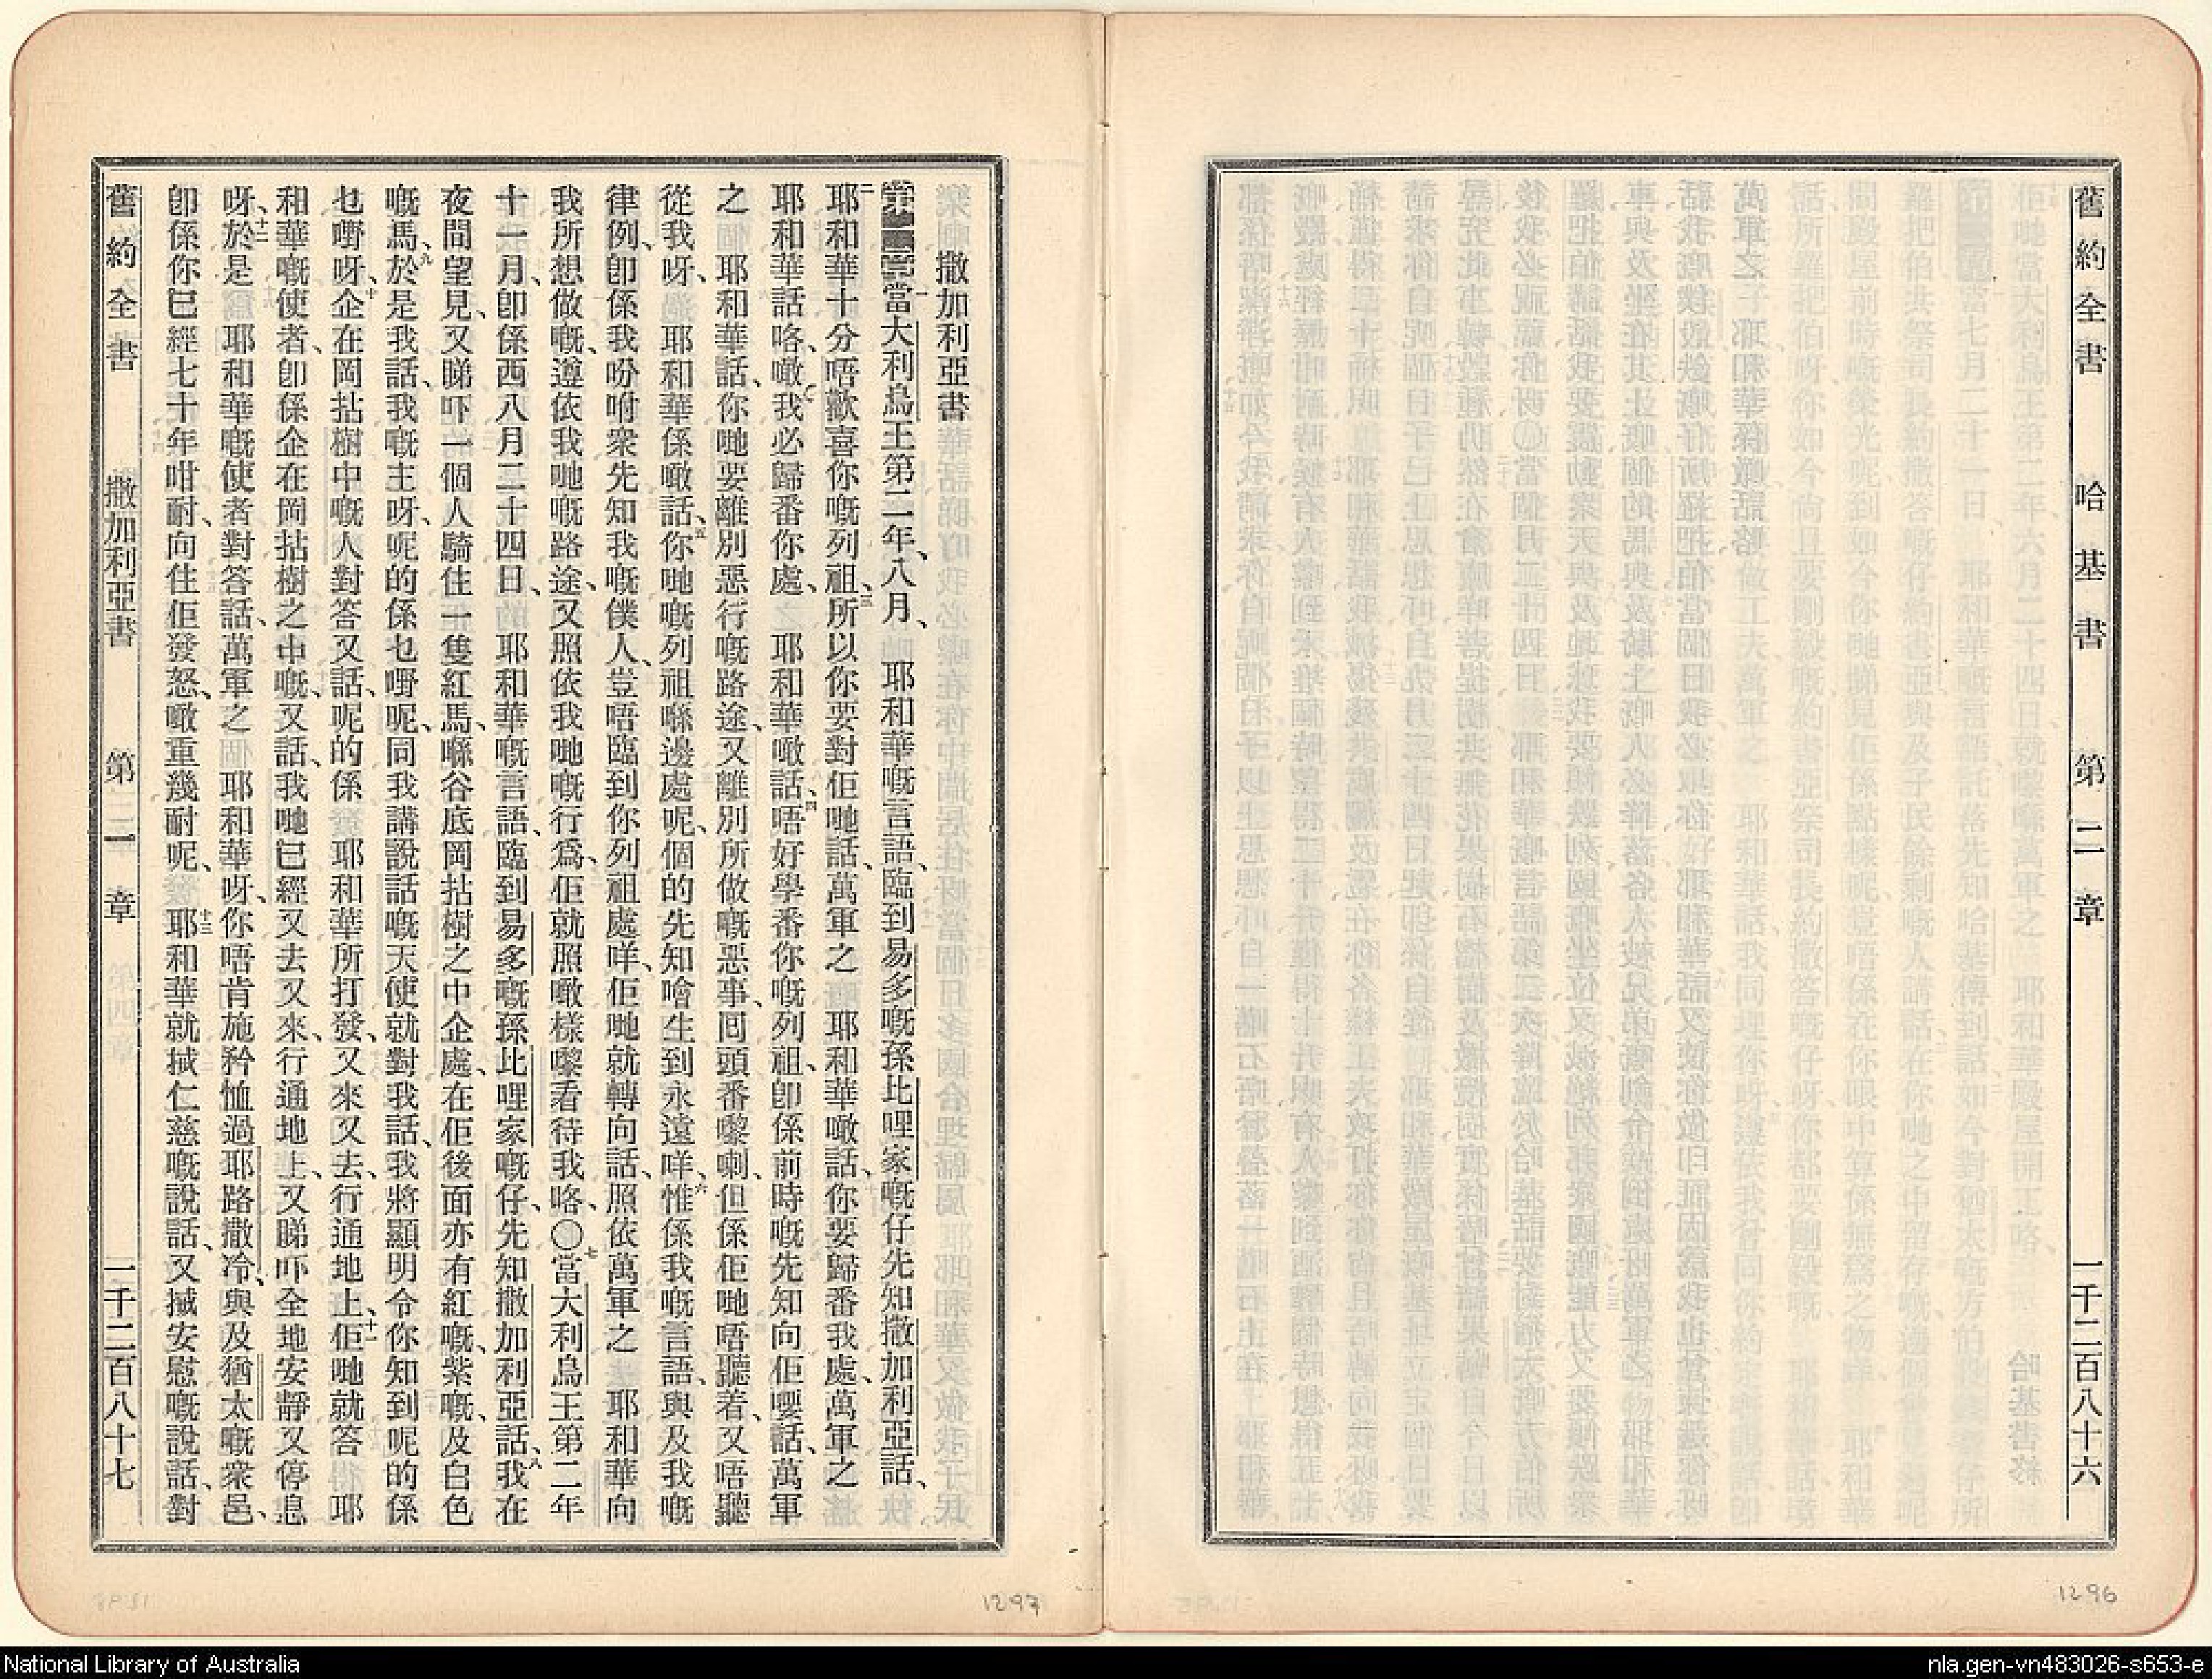 舊約全書 哈基書 第二章 一千二百八十六
1296
撒加利亞書
當大利烏王第二年、八月、耶和華嘅言語、臨到易多嘅孫比哩家嘅仔先知撒加利亞話、
二耶和華十分唔歡喜你嘅列祖、三所以你要對佢哋話、萬軍之耶和華噉話、你要歸番我處、萬軍之
耶和華話咯、噉我必歸番你處、耶和華噉話、四唔好學番你嘅列祖、卽係前時嘅先知向佢嘤話、萬軍
之耶和華話、你哋要離別惡行嘅路途、又離別所做嘅惡事、囘頭番嚟喇、但係佢哋唔聽着、又唔聽
從我呀、耶和華係噉話、五你哋嘅列祖喺邊處呢、個的先知噲生到永遠咩、六惟係我嘅言語、與及我嘅
律例、卽係我吩咐衆先知我嘅僕人、豈唔臨到你列祖處咩、佢哋就轉向話、照依萬軍之耶和華向
我所想做嘅、遵依我哋嘅路途、又照依我哋嘅行爲、佢就照噉樣嚟看待我咯、〇七當大利烏王第二年
十一月、卽係西八月二十四日、耶和華嘅言語、臨到易多嘅孫比哩家嘅仔、先知撒加利亞話、八我在
夜間望見、又睇吓一個人騎住一隻紅馬、喺谷底岡拈樹之中企處、在佢後面亦有紅嘅、紫嘅、及白色
嘅馬、九於是我話、我嘅主呀、呢的係乜嘢呢、同我講說話嘅天使就對我話、我將顯明令你知到呢的係
乜嘢呀、十企在岡拈樹中嘅人對答又話、呢的係耶和華所打發、又來又去、行通地上、十一佢哋就答耶
和華嘅使者、卽係企在岡拈樹之中嘅、又話、我哋已經又去又來、行通地上、又睇吓全地安靜又停息
呀、十二於是耶和華嘅使者對答話、萬軍之耶和華呀、你唔肯施矜恤過耶路撒冷、與及猶太嘅衆邑、
卽係你已經七十年咁耐、向住佢發怒、噉重幾耐呢、十三耶和華就搣仁慈嘅說話、又搣安慰嘅說話、對
舊約全書 撒加利亞書 第一章 一千二百八十七
1297
National Library of Australia
nla.gen-vn483026-s653-e